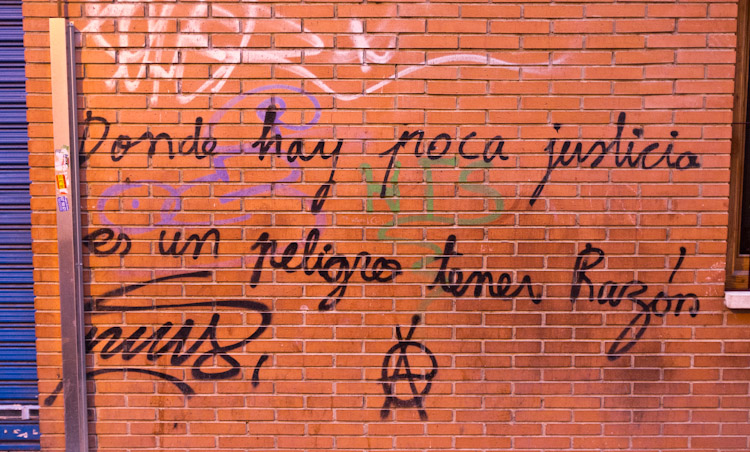 Donde hay poca justicia
es un peligro tener Razón